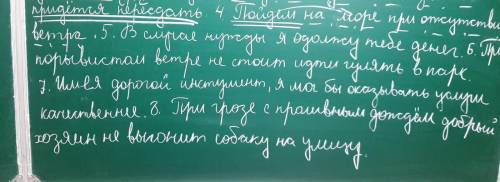 придётся пересдать. 4. Пойдём на море при отсутстви
ветра. 5. В случае нужды я одолжу тебе денег. 6. Пр
порывистом ветре не стоит идти гулять в парк.
7. Имея дорогой инстумент, я мог бы оказывать услуги
качественнее. 8. При грозе с проливным дождём добрый
хозяин не выгонит собаку на улицу.